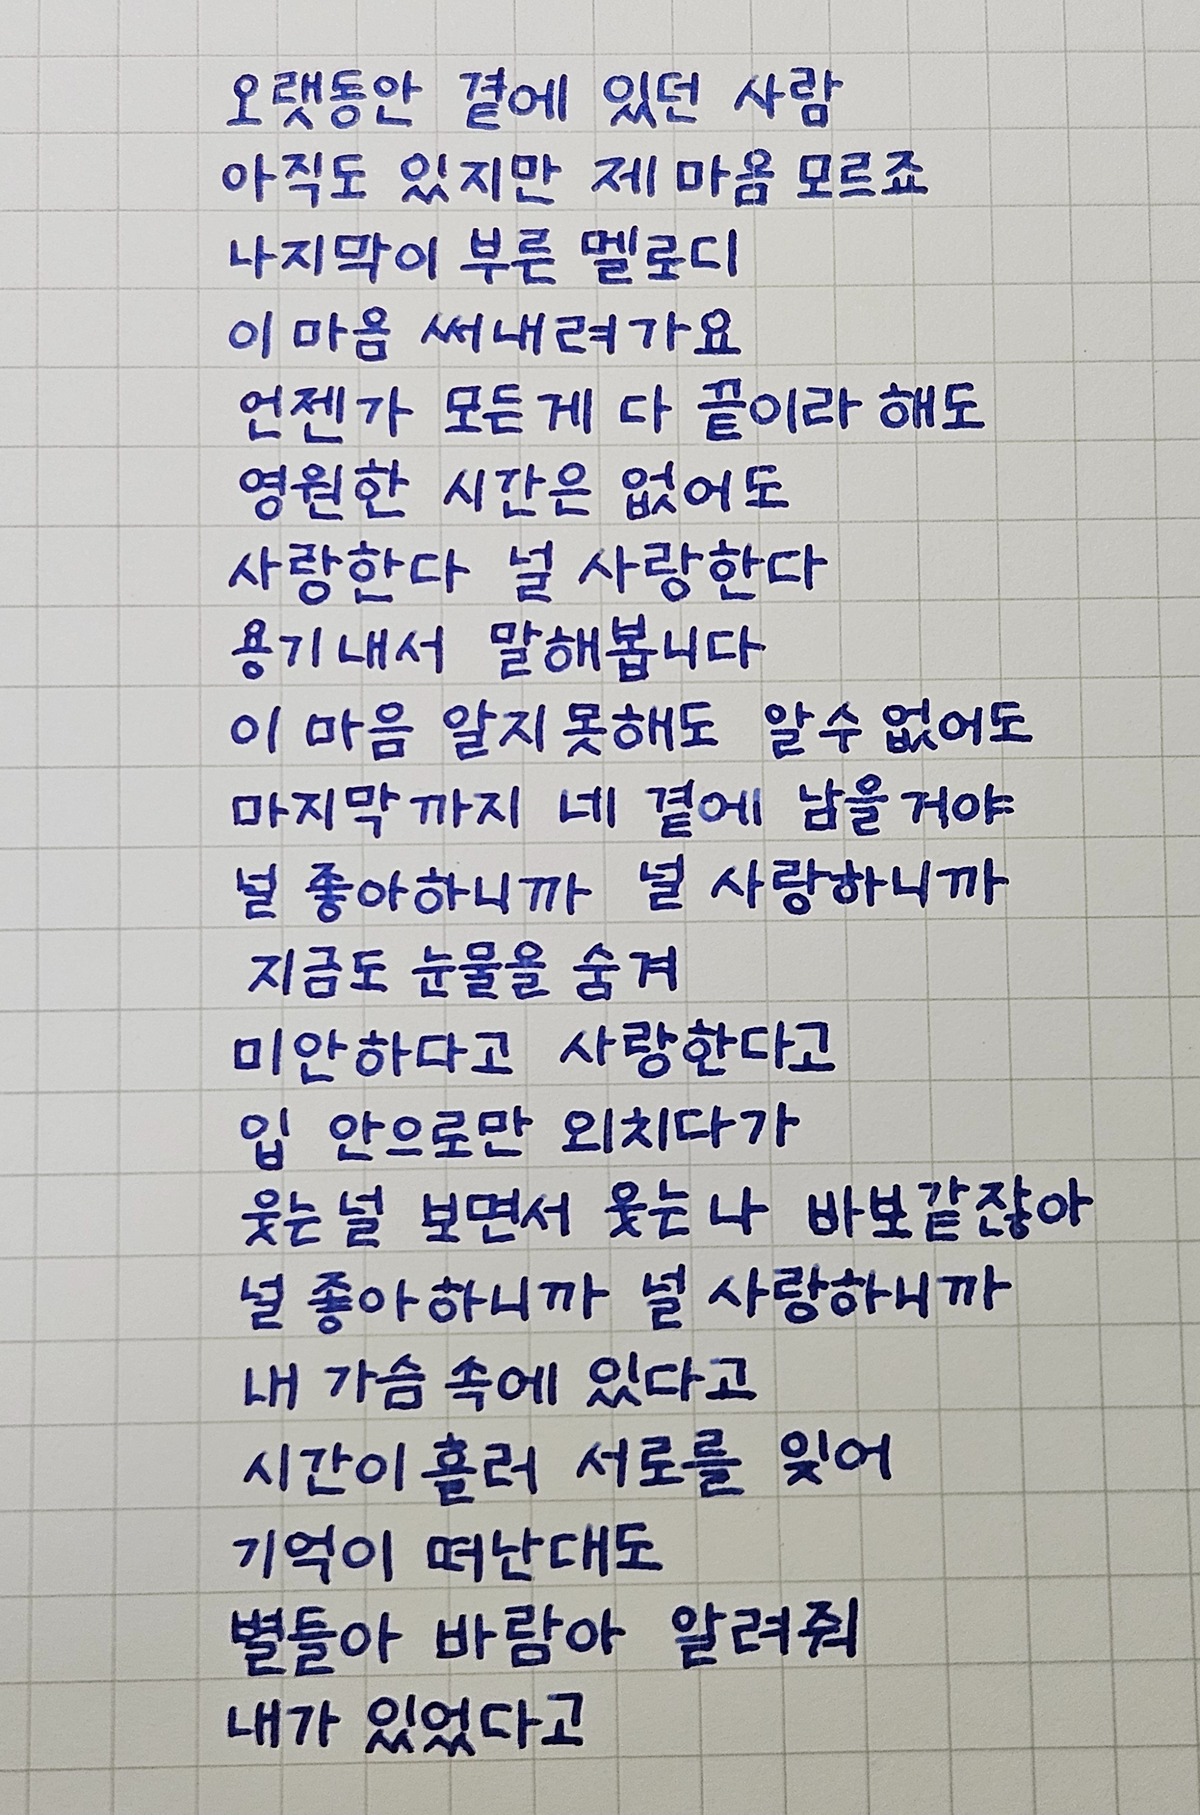 오랫동안 곁에 있던 사람
아직도 있지만 제 마음 모르죠
나지막이 부른 멜로디
이 마음 써내려가요
언젠가 모든게 다 끝이라 해도
영원한 시간은 없어도
사랑한다 널 사랑한다
용기내서 말해봅니다
이 마음 알지못해도 알수 없어도
마지막까지 네 곁에 남을거야
널 좋아하니까 널 사랑하니까
지금도 눈물을 숨겨
미안하다고 사랑한다고
입 안으로만 외치다가
웃는널 보면서 웃는나 바보같잖아
널 좋아하니까 널 사랑하니까
내 가슴속에 있다고
시간이 흘러 서로를 잊어
기억이 떠난대도
별들아 바람아 알려줘
내가 있었다고